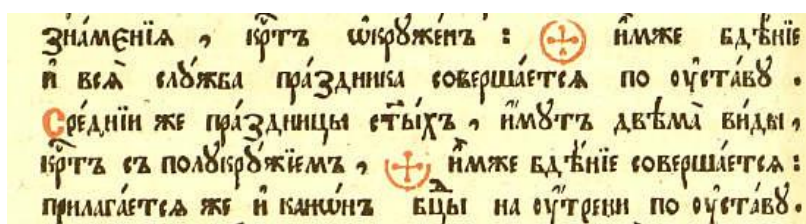 зна́менїѧ , крⷭ҇тъ ѡ҆кру́женъ : 🕀 и҆́мже бдѣ́нїе
и҆ всѧ̀ слꙋ́жба пра́здника соверша́етсѧ по ᲂу҆ста́вꙋ .
Сре́днїи же пра́здницы ст҃ы́хъ , и҆́мꙋтъ двѣма̀ ви́ды ,
крⷭ҇тъ съ полꙋкрꙋ́жїемъ , 🕁 и҆́мже бдѣ́нїе соверша́етсѧ :
прилага́етсѧ же и҆ канѡ́нъ бц҃ы на ᲂу҆́трени по ᲂу҆ста́вꙋ .